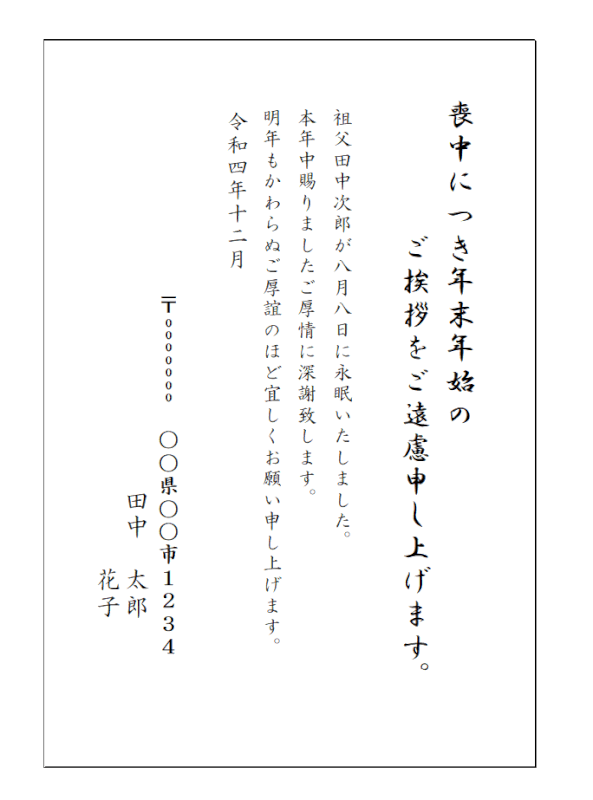 喪中につき年末年始の
ご挨拶をご遠慮申し上げます。
祖父田中次郎が八月八日に永眠いたしました。
本年中賜りましたご厚情に深謝致します。
明年もかわらぬご厚誼のほど宜しくお願い申し上げます。
令和四年十二月
〒0000000 〇〇県〇〇市1234
田中 太郎
花子